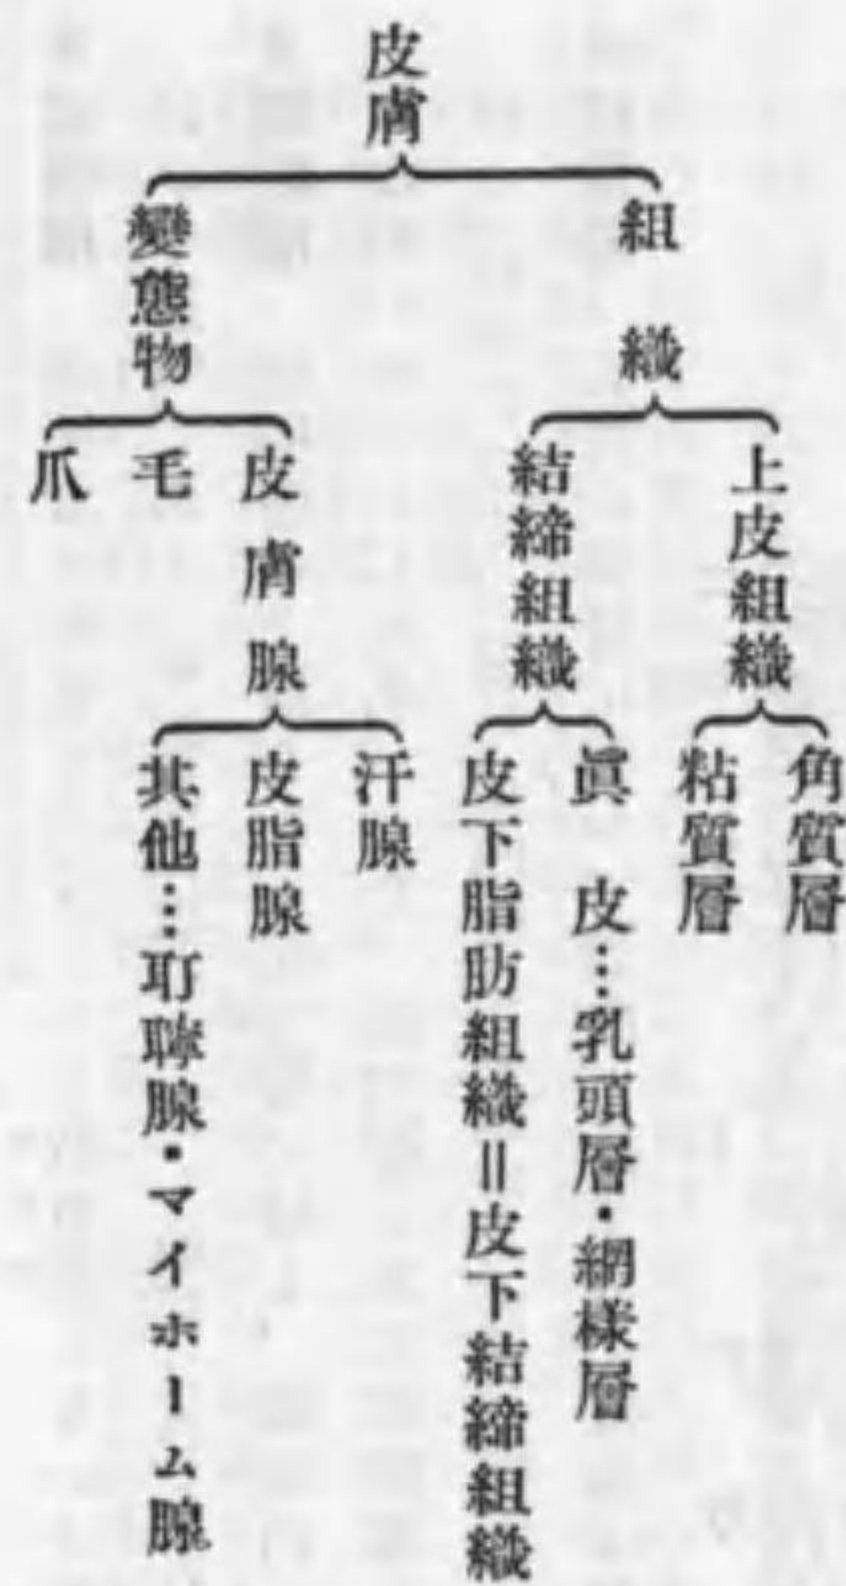 皮膚
組織
上皮組織
角質層
粘質層
結締組織
眞皮…乳頭層・網樣層
皮下脂肪組織=皮下結締組織
變態物
皮膚腺
汗腺
皮脂腺
其他…耵聹腺・マイホーム腺
毛
爪